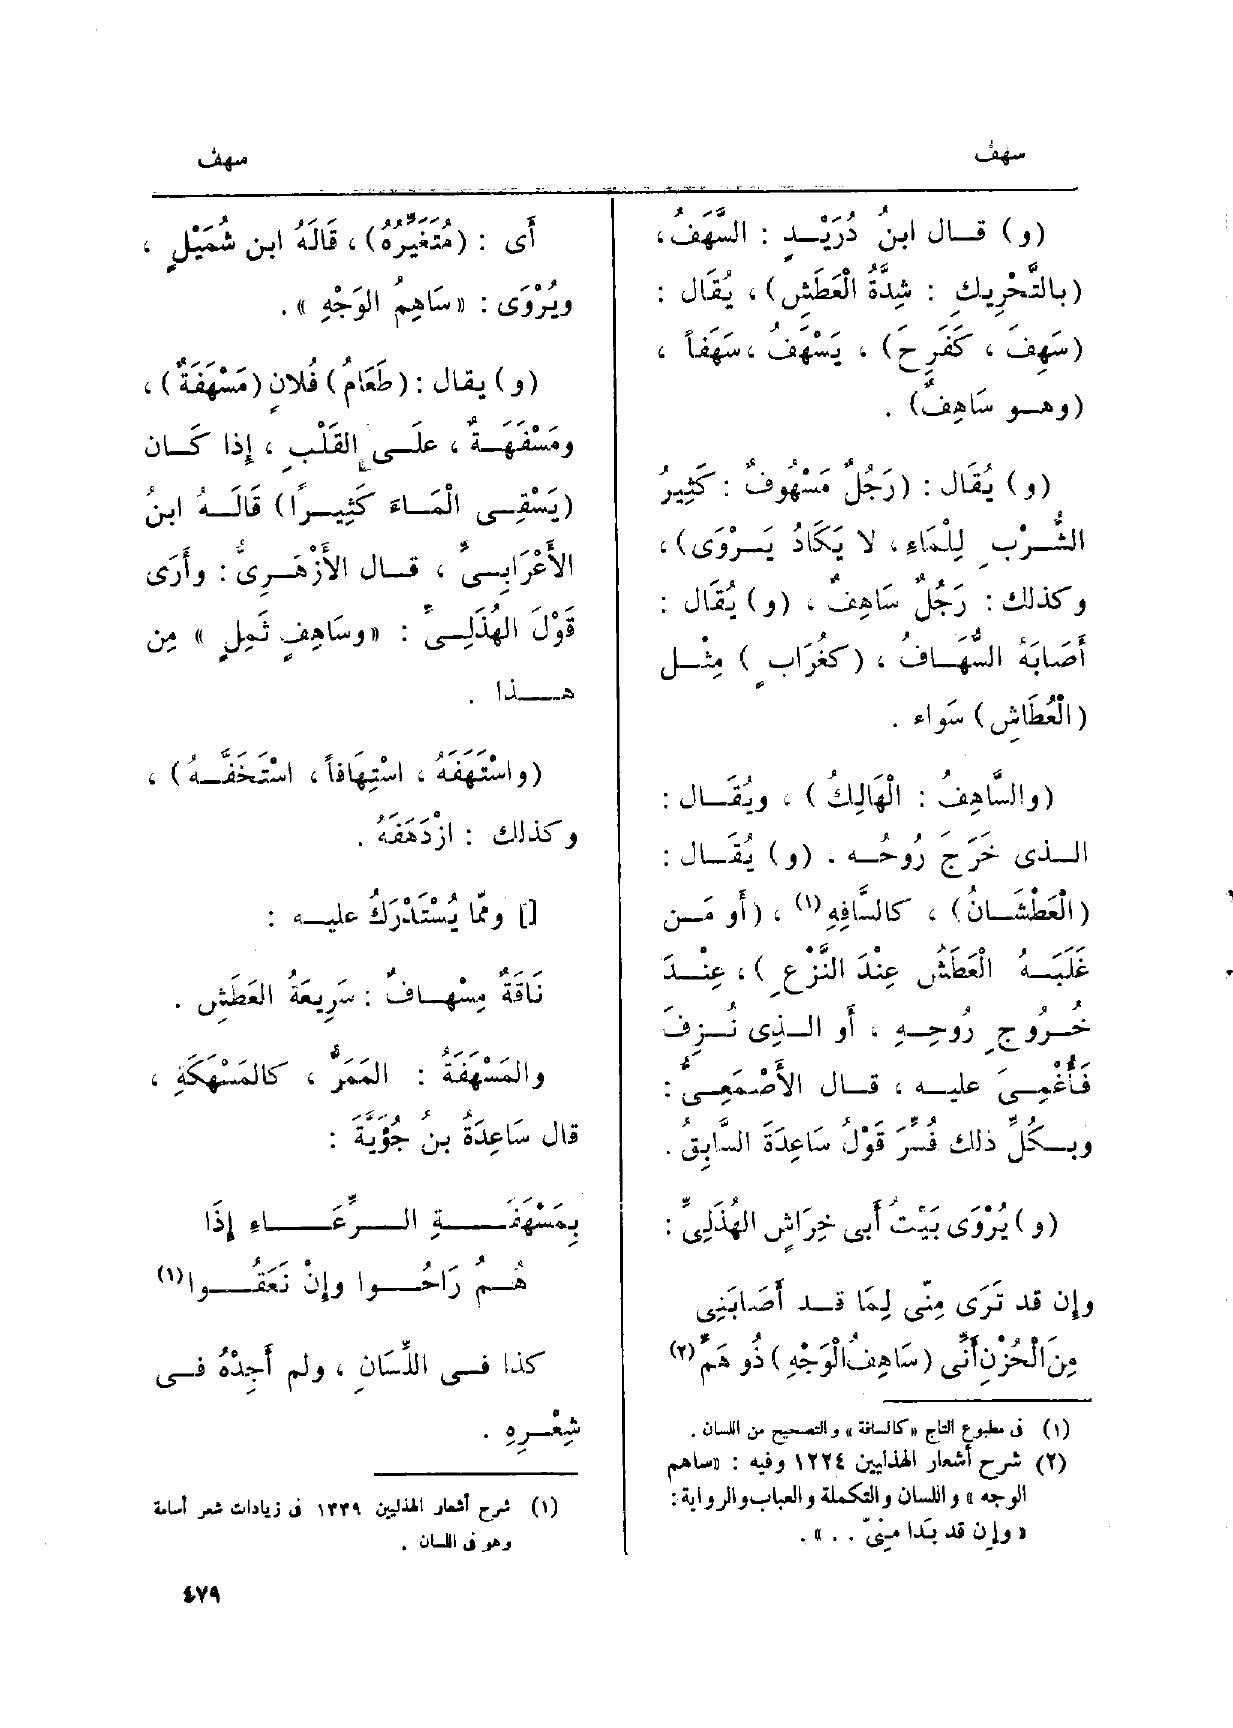 سهف
سهف
(و) قــال ابنُ دُرَيْــدٍ : السَّهَفُ،
(بالتَّحْرِيكِ : شِدَّةُ الْعَطَشِ) ، يُقَال :
(سَهِفَ ، كَفَرِحَ) ، يَسْهَفُ ، سَهَفاً ،
(وهــو سَاهِفٌ) .
(و) يُقَال : (رَجُلٌ مَسْهُوفٌ : كَثِيرُ
الشُّــرْبِ لِلْمَاءِ ، لا يَكَادُ يَــرْوَى) ،
وكذلك : رَجُلٌ سَاهِفٌ ، (و) يُقَال :
أَصَابَهُ السُّهَــافُ ، (كغُرَابٍ ) مِثْــل
(الْعُطَاشِ) سَواء .
(والسَّاهِفُ : الْهَالِكُ) ، ويُقَــال :
الــذى خَرَجَ رُوحُــه . (و) يُقَــال :
(الْعَطْشَــانُ) ، كالسَّافِهِ (١) ، (أو مَــن
غَلَبَــهُ الْعَطَشُ عِنْدَ النَّزْعِ ) ، عِنْــدَ
خُــرُوجِ رُوحِــهِ ، أو الــذِى نُــزِفَ
فَأُغْمِــىَ عليــه ، قــال الأَصْمَعِــىُّ :
وبــكُلِّ ذلك فُسِّرَ قَوْلُ سَاعِدَةَ السَّابِقُ .
(و) يُرْوَى بَيْتُ أَبى خِرَاشٍ الهُذَلِىِّ :
وإن قد تَرَى مِنِّى لِمَا قــد أَصَابَنِى
مِنَ الْحُزْنِ أَنِّى (سَاهِفُ الْوَجْهِ) ذُو هَمِّ (٢)
(١) فى مطبوع التاج «كالسافة» والتصحيح من اللسان .
(٢) شرح أشعار الهذليين ١٢٢٤ وفيه : «ساهم
الوجه» واللسان والتكملة والعباب والرواية :
«وإن قد بَدا مِنِّىّ . . » .
أى : (مُتَغَيِّرُهُ) ، قَالَهُ ابن شُمَيْلٍ ،
ويُرْوَى : «سَاهِمُ الوَجْهِ » .
(و) يقال : (طَعَامُ) فُلانٍ (مَسْهَفَةٌ) ،
ومَسْفَهَــةٌ ، علَــى القَلْبِ ، إذا كَــان
(يَسْقِــى الْمَــاءَ كَثِيــرًا) قَالَــهُ ابنُ
الأَعْرَابِــىِّ ، قــال الأَزْهَــرِىُّ : وأَرَى
قَوْلَ الهُذَلِــىِّ : «وسَاهِفٍ ثَمِلٍ » مِن
هــــذا .
(واسْتَهَفَهُ ، اسْتِهَافاً ، اسْتَخَفَّــهُ) ،
وكذلك : ازْدَهَفَهُ .
[] وممّا يُسْتَدْرَكُ عليــه :
نَاقَةٌ مِسْهــافٌ : سَرِيعَةُ العَطَشِ .
والمَسْهَفَةُ : المَمَرُّ ، كالمَسْهَكَةِ ،
قال سَاعِدَةُ بنُ جُؤَيَّةَ :
بِمَسْهَفَــــةِ الــــرِّعَــــاءِ إِذَا
هُــمُ رَاحُــــوا وإِنْ نَعَقُــــوا (١)
كذا فــى اللِّسَانِ ، ولم أَجِدْهُ فــى
شِعْــرِهِ .
(١) شرح أشعار الهذليين ١٣٣٩ فى زيادات شعر أسامة
وهو فى اللسان .
٤٧٩